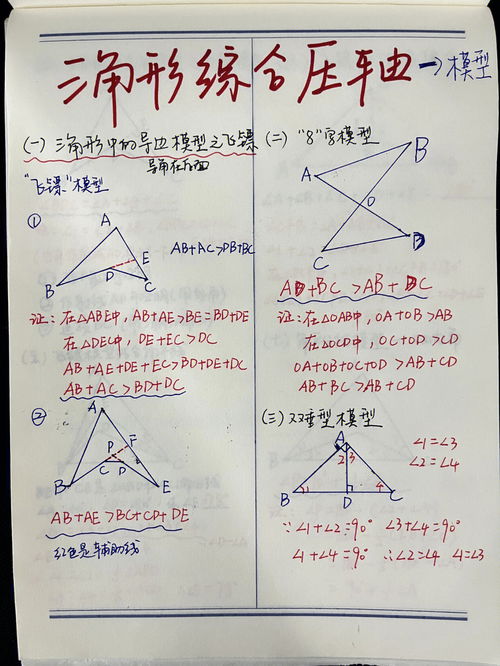 三角形综合压轴→模型
(一) 三角形中的导边模型之飞镖
导角在后面
"飞镖"模型
①
A
B
C
D
E
AB+AC>DB+BC
证：在△ABE中，AB+AE>BE=BD+DE
在△DEC中，DE+EC>DC
AB+AE+DE+EC>BD+DE+DC
AB+AC>BD+DC
②
A
B
C
D
E
P
F
AB+AE>BC+CD+DE
红色是辅助线
(二) "8"字模型
A
B
O
C
D
AD+BC>AB+DC
证：在△OAB中，OA+OB>AB
在△OCD中，OC+OD>CD
OA+OB+OC+OD>AB+CD
AB+BC>AB+CD
(三) 双垂型模型
A
B
D
C
1
2
3
4
∠1=∠3
∠2=∠4
∵∠1+∠2=90° ∠3+∠4=90°
∠1+∠4=90° ∴∠2=∠4 ∠1=∠3